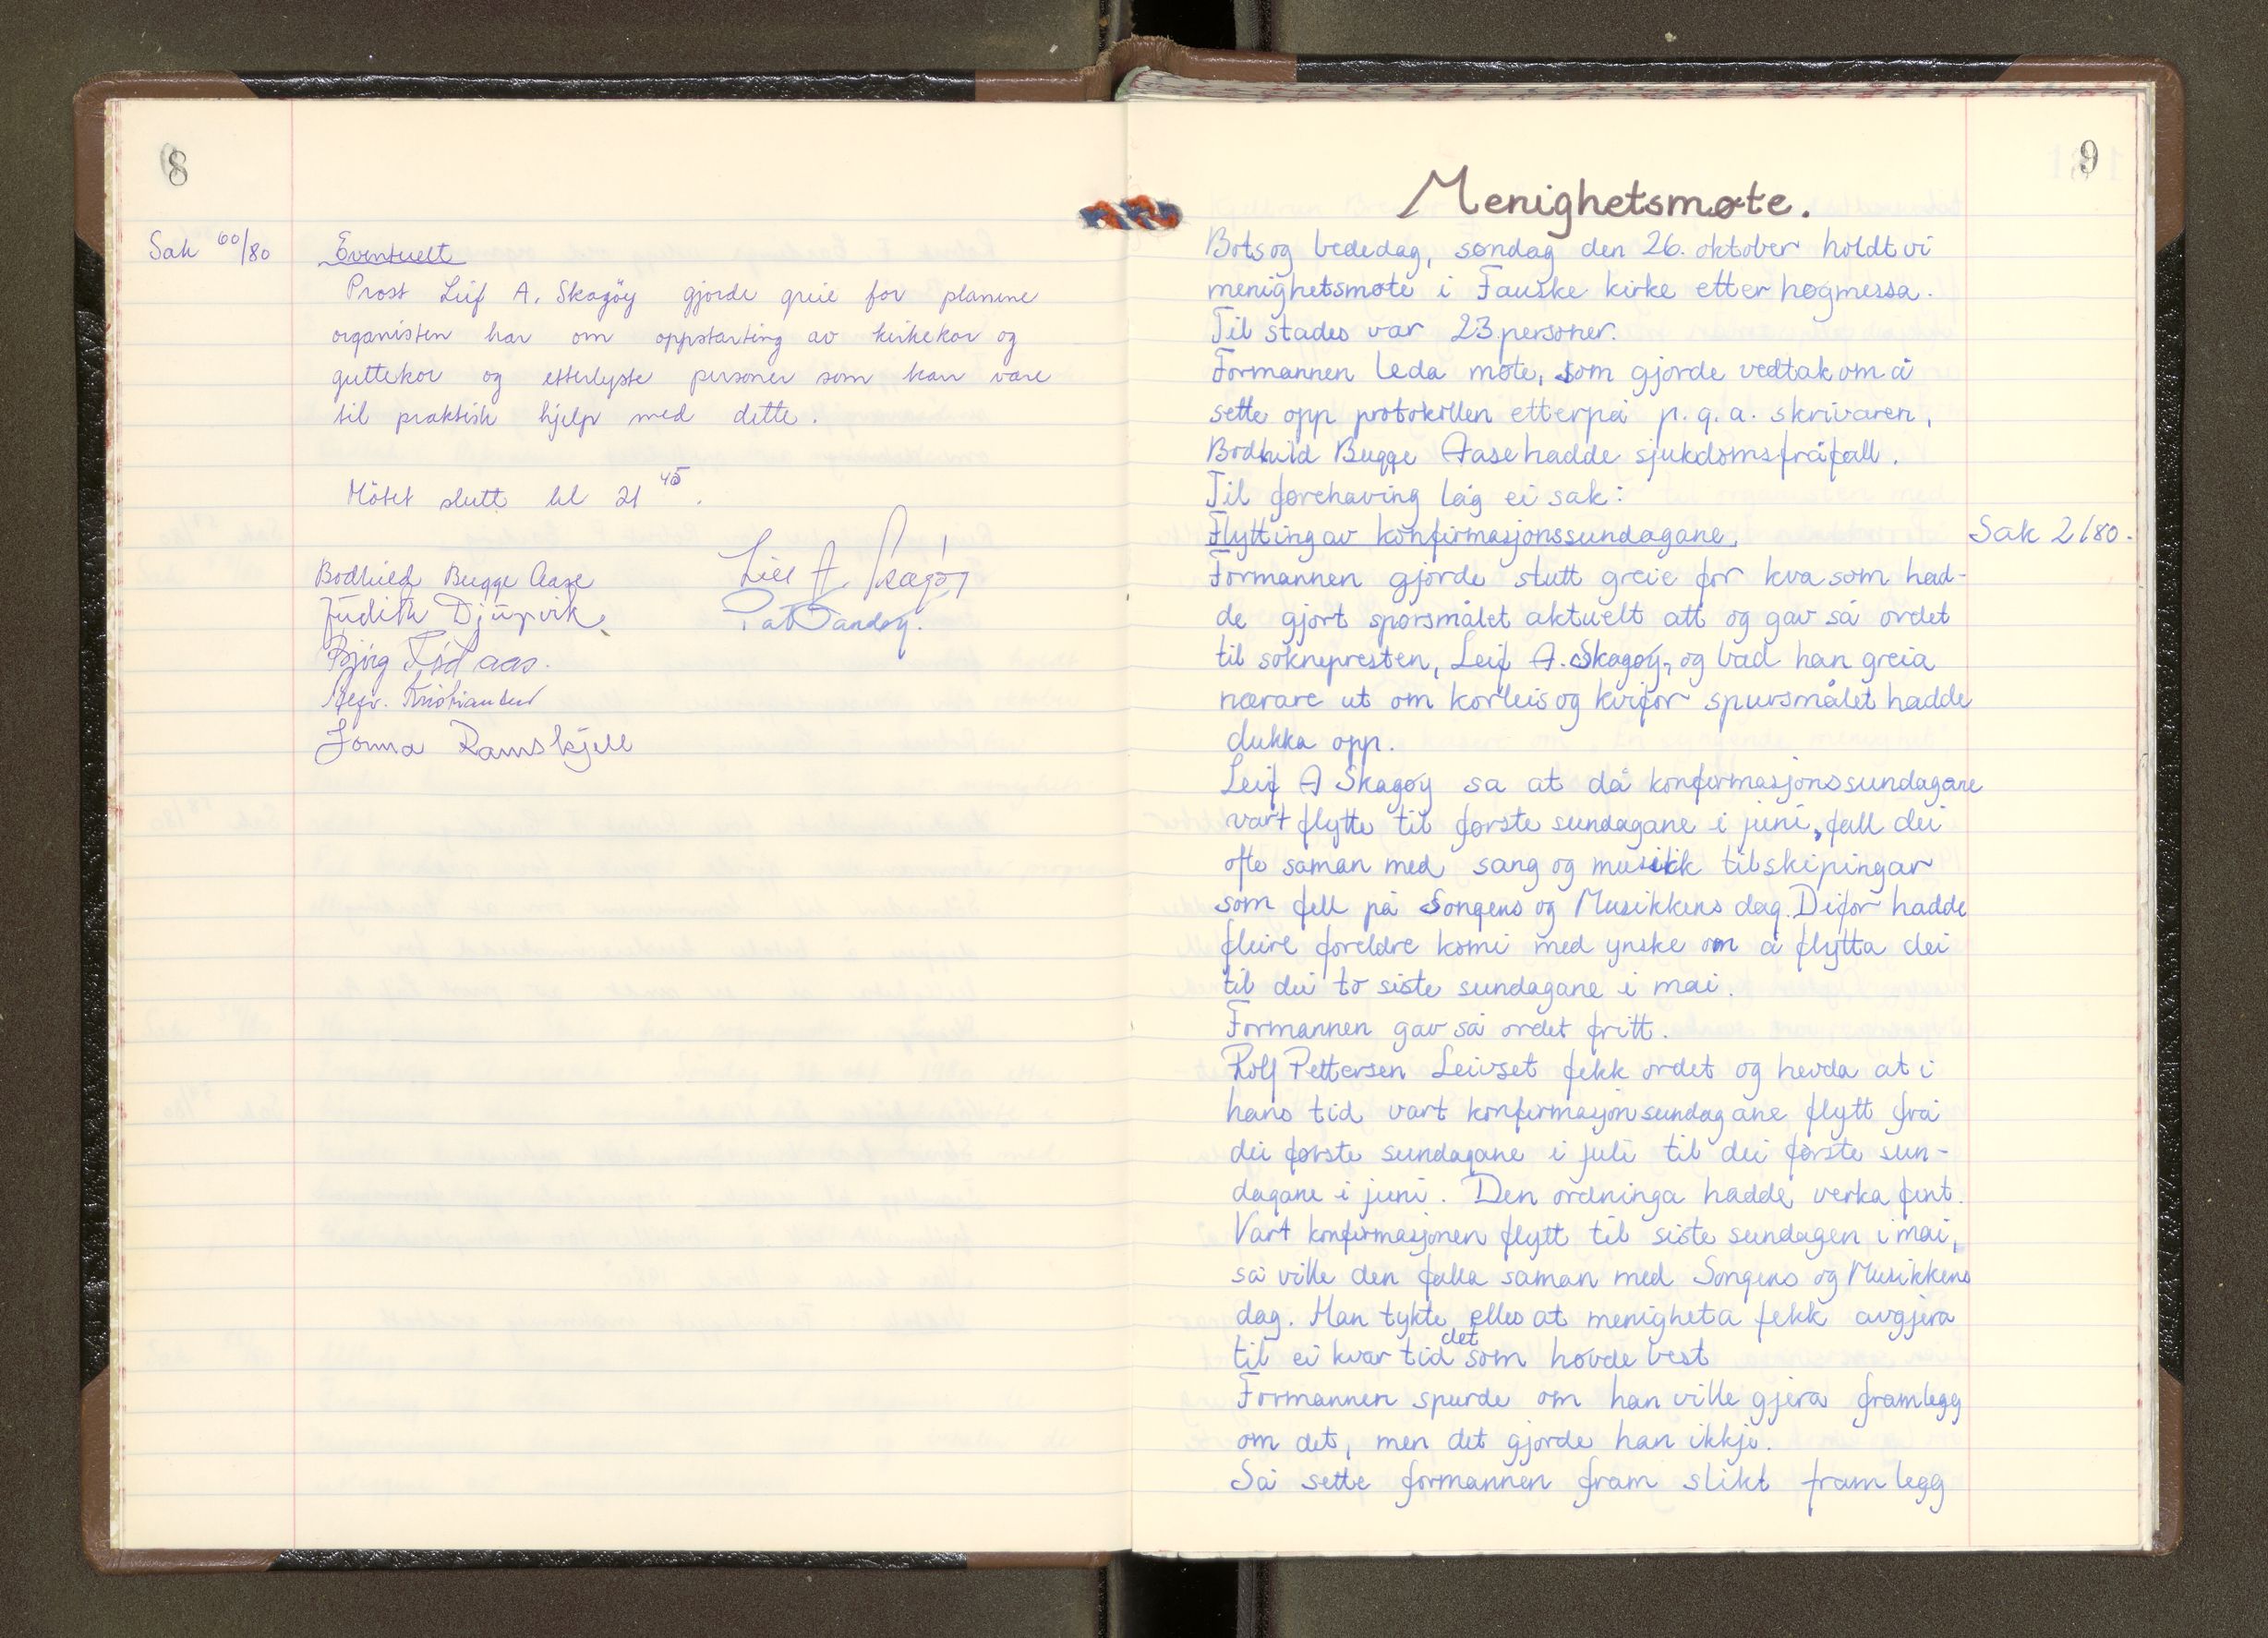 8
Sak 60/80
Eventuelt
Prost Leif A. Skagöy gjorde greie for planene
organisten har om oppstarting av kirkekor og
guttekor og etterlyste personer som kan være
til praktisk hjelp med dette.
Mötet slutt kl 21 45.
Bodhild Bugge Aase
Leif A. Skagöy
Judith Djupvik
Bjørg
Kristiansen
Jonna Ramskjell
9
Menighetsmøte.
Bots og bededag, søndag den 26. oktober holdt vi
menighetsmøte i Fauske kirke etter høgmessa.
Til stades var 23 personer.
Formannen leda møte, som gjorde vedtak om å
sette opp protokollen etterpå p.g.a. skrivaren,
Bodhild Bugge Aase hadde sjukdomsfråfall.
Til førehaving låg ei sak:
Flytting av konfirmasjonssundagane.
Sak 2/80.
Formannen gjorde stutt greie for kva som had-
de gjort spørsmålet aktuelt att og gav så ordet
til soknepresten, Leif A. Skagøy, og bad han greia
nærare ut om korleis og kvifor spursmålet hadde
dukka opp.
Leif A Skagøy sa at då konfirmasjonssundagane
vart flytte til første sundagane i juni, fall dei
ofte saman med sang og musikk tilskipingar
som fell på Songens og Musikkens dag. Difor hadde
fleire foreldre komi med ynske om å flytta dei
til dei to siste sundagane i mai.
Formannen gav så ordet fritt.
Rolf Pettersen Leivset fekk ordet og hevda at i
hans tid vart konfirmasjonsundagane flytt frå
dei første sundagane i juli til dei første sun-
dagane i juni. Den ordninga hadde verka fint.
Vart konfirmasjonen flytt til siste sundagen i mai,
så ville den falla saman med Songens og Musikkens
dag. Han tykte elles at menigheta fekk avgjera
til ei kvar tid det som høvde best
Formannen spurde om han ville gjera framlegg
om det, men det gjorde han ikkje.
Så sette formannen fram slikt framlegg